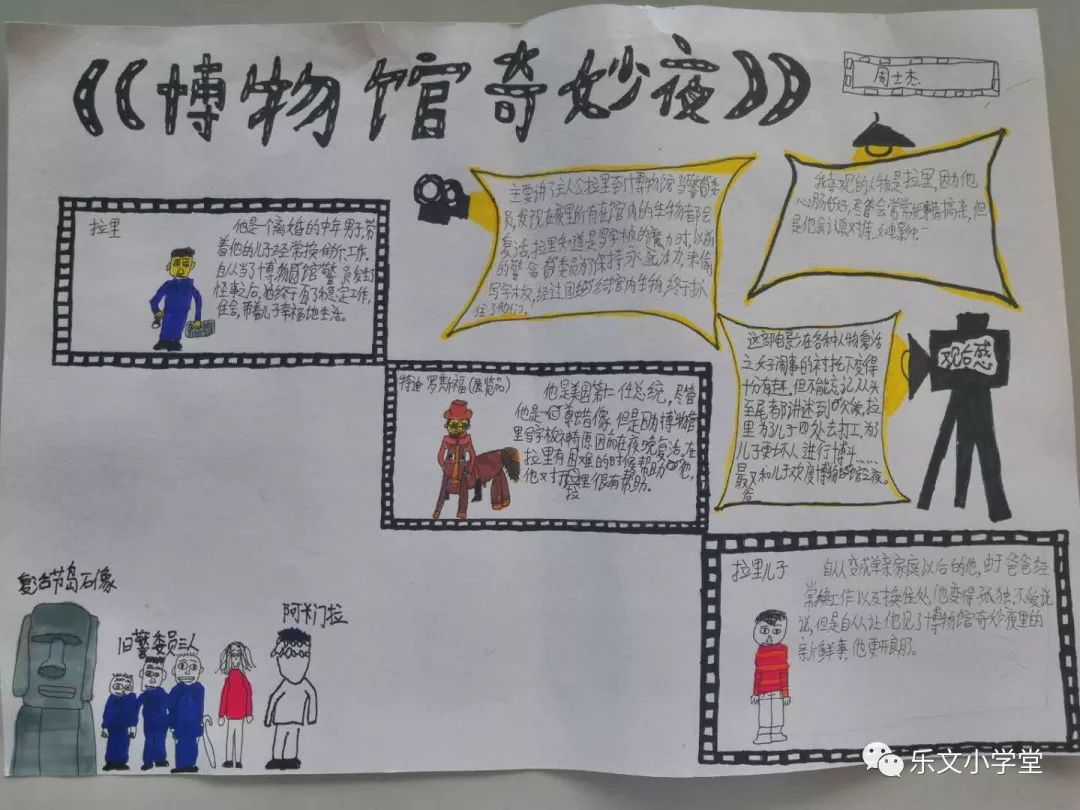 《博物馆奇妙夜》
周士杰
拉里
他是个离婚的中年男子,带
着他的儿子经常换
工作。
自从当了博物馆馆警员发生
怪事之后,他终于有了稳定工作,
住舍,带着儿子幸福地生活。
主要讲了主人公拉里到博物馆当警
员,发现在夜里所有在馆内的生物都会
复活,拉里知道是写字板的魔力时,以前
的警
委员为了保持永远活力,来偷
写字板,经过团结
馆内生物,终于抓
住了他们。
我喜观的人物是拉里,因为他
心肠好,尽管会常常把事情搞杂,但
是他会认真对待
这部电影在各种人物复活
之夫子闹事的衬托下变得
十分有趣。但不能忘记从头
至尾都讲述到
,拉
里为了儿子四处去打工,为了
儿子更坏人进行博斗……
最后又和儿子欢度博物馆之夜。
观后感
特迪·罗斯福(展览品)
他是美国第二任总统,尽管
他是一
蜡像,但是因为博物馆
里写字板
原因而在夜晚复活,在
拉里有困难的时候帮助
他,
他又对拉里很有帮助。
拉里儿子
自从变成单亲家庭以后的他,由于爸爸经
常换工作以及换住处,他变得孤独,不爱说
说,但是自从让他见了博物馆奇妙夜里的
新鲜事,他更开朗了。
复活节岛石像
旧警委员三人
阿卡门拉
乐文小学堂